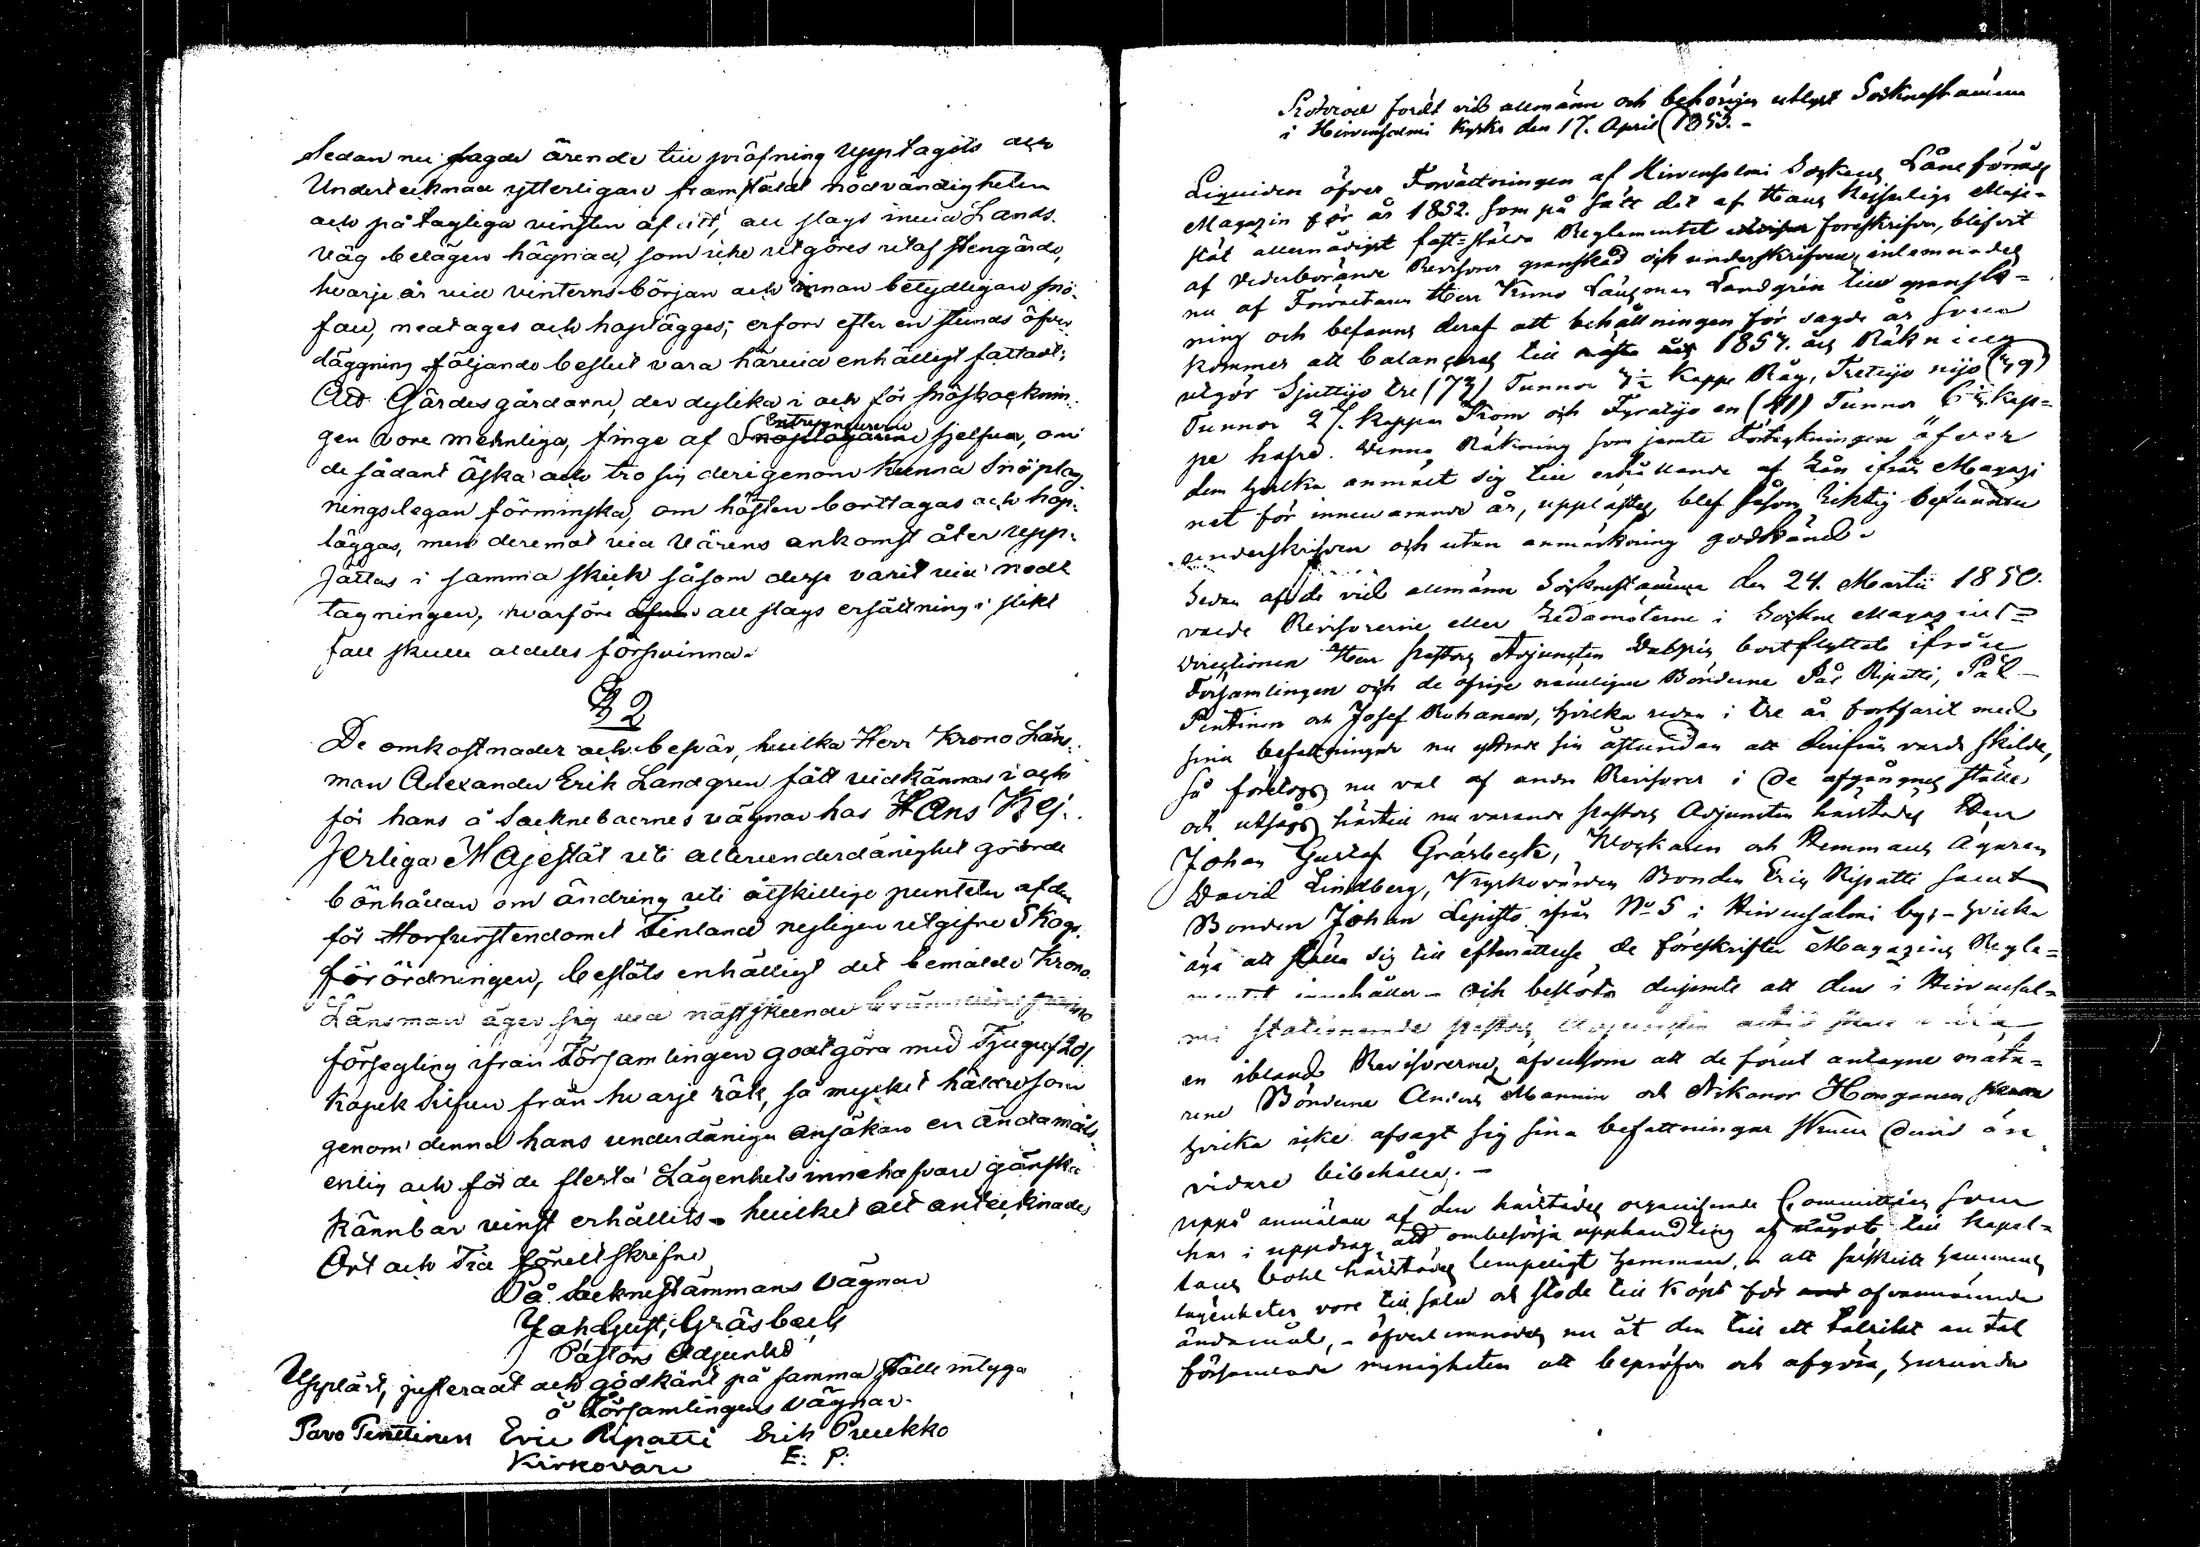 Sedan nu sagde ärende till pröfning upptagits och
Undertecknad ytterligare framstäldt nödvändigheten
och påtagliga vinsten af att, all slags invid Lands-
väg belägen hägnad, som icke utgöres utaf stengärde,
hvarje år vid vinterns början och innan betydligare snö-
fall, nedtages och hoplägges; erfors efter en stunds öfver
läggning följande beslut vara härvid enhälligt fattadt;
Att Gärdesgårdarne, der dylika i och för snöskocknin-
gen vore menliga, finge af Snöplogarene Entreprenörerne sjelfva, om
de sådant äska och tro sig derigenom kunna Snöplog
ningslegan förminska, om hösten borttagas och hop-
läggas, men deremot vid Vårens ankomst åter upp-
sättas i samma skick såsom desse varit vid ned
tagningen, hvarföre äfven all slags ersättning i slikt
fall skulle aldeles försvinna.
§ 2
De omkostnader och besvär, hvilka Herr Krono Läns-
man Alexander Erik Landgren fått vidkännas i och
för hans å Sockneboernes vägnar hos Hans Kej-
serliga Majestät uti allerunderdånighet gjorde
bönhållan om ändring uti åtskillige puncter af den
för Storfurstendömet Finland nyligen utgifne Skogs
förordningen, beslöts enhälligt det bemälde Krono
Länsman äger sig vid nästskeende Brännvins panne
försegling ifrån Församlingen godtgöra med Tjugu /20/
Kopek Silfver från hvarje rök, så mycket häldre som
genom denna hans underdåniga ansökan en ändamåls-
enlig och för de flesta Lägenhets innehafvare ganska
kännbar vinst erhållits – hvilket allt antecknades
Ort och Tid förutskrefne
På Socknestämmans vägnar
Joh Gust. Gråsbeck
Pastors Adjunkt
Uppläst, justeradt och godkänt på samma ställe intyga
å Församlingens vägnar.
Pavo Penttinen Eric Ripatti Erik Pruukko
Kirkoväri E: P:
Protocoll fördt vid allmänn och behörigen utlyst Socknestämma
i Hirvensalmi kyrka den 17. April 1853. –
Liquiden öfver Förvaltningen af Hirvensalmi Sockens Låneförråds
Magazin för år 1852. som på sätt det af Hans Kejserliga Maje-
stät allernådigst fast-stälda Reglementet föreskrifver, blifvit
af vederbörande Revisorer granskad och underskrifven, inlemnades
nu af Förvaltaren Herr Krono Länsman Landgrén till gransk-
ning och befanns deraf att behållningen för sagde år som
kommer att balanceras till 1853. års Räkning
utgör Sjuttijo tre (73) Tunnor 7½ Kappe Råg, Trettijo nijo (39)
Tunnor 2 Kappar Korn och Fyratijo en (41) Tunnor Kap-
pe hafre. Denna Räkning som jemte Förteckningen öfver
dem hvilka anmält sig till erhållande af Lån ifrån Magazi
net för innevarande år, upplästes, blef såsom riktig befunnen
underskrifven och utan anmärkning godkänd.
Sedan af de vid allmänn Socknestämma den 24. Martii 1850.
valde Revisorerne eller Ledamöterne i Sockne Magazins-
Directionen Herr Pastors Adjuncten bortflyttat ifrån
Församlingen och de öfrige nemligen Bönderne Pål Ripatti, Pål
Penttinen och Josef Ruhanen, hvilka redan i tre år fortfarit med
sina befattningar nu yttrade sin åstundan att derifrån varda skilde,
så företogs nu val af andre Revisorer i de afgångnes ställe
och utsågs härtill nu varande Pastors Adjuncten härstädes Herr
Johan Gustaf Gråsbeck, Klockaren och Hemmans Ägaren
David Lindberg, Kyrkovärden Bonden Eric Ripatti samt
Bonden Johan Lepistö ifrån No 5 i Hirvensalmi by, – hvilka
äga att ställa sig till efterrättelse de föreskrifter Magazins Regle-
mentet innehåller – och beslöts derjemte att den i Hirvensal-
mi stationerade Pastors Adjuncten alltid skall vara
en ibland Revisorerne, äfvensom att de förut antagne mäta-
rene Bönderne Anders Manninen och Nikanor Hongonen
hvilka icke afsagt sig sina befattningar skulle dervid än
vidare bibehållas. –
Uppå anmälan af den härstädes organiserade Committéen som
har i uppdrag att ombesörja upphandling af något till kapel-
lans bohl härstädes lämpeligt hemman, att särskilta hemmans
lägenheter vore till salu och stode till köps för ofvannämnde
ändamål, – öfverlemnades nu åt den till ett talrikt antal
församlade menigheten att bepröfva och afgöra, huruvida